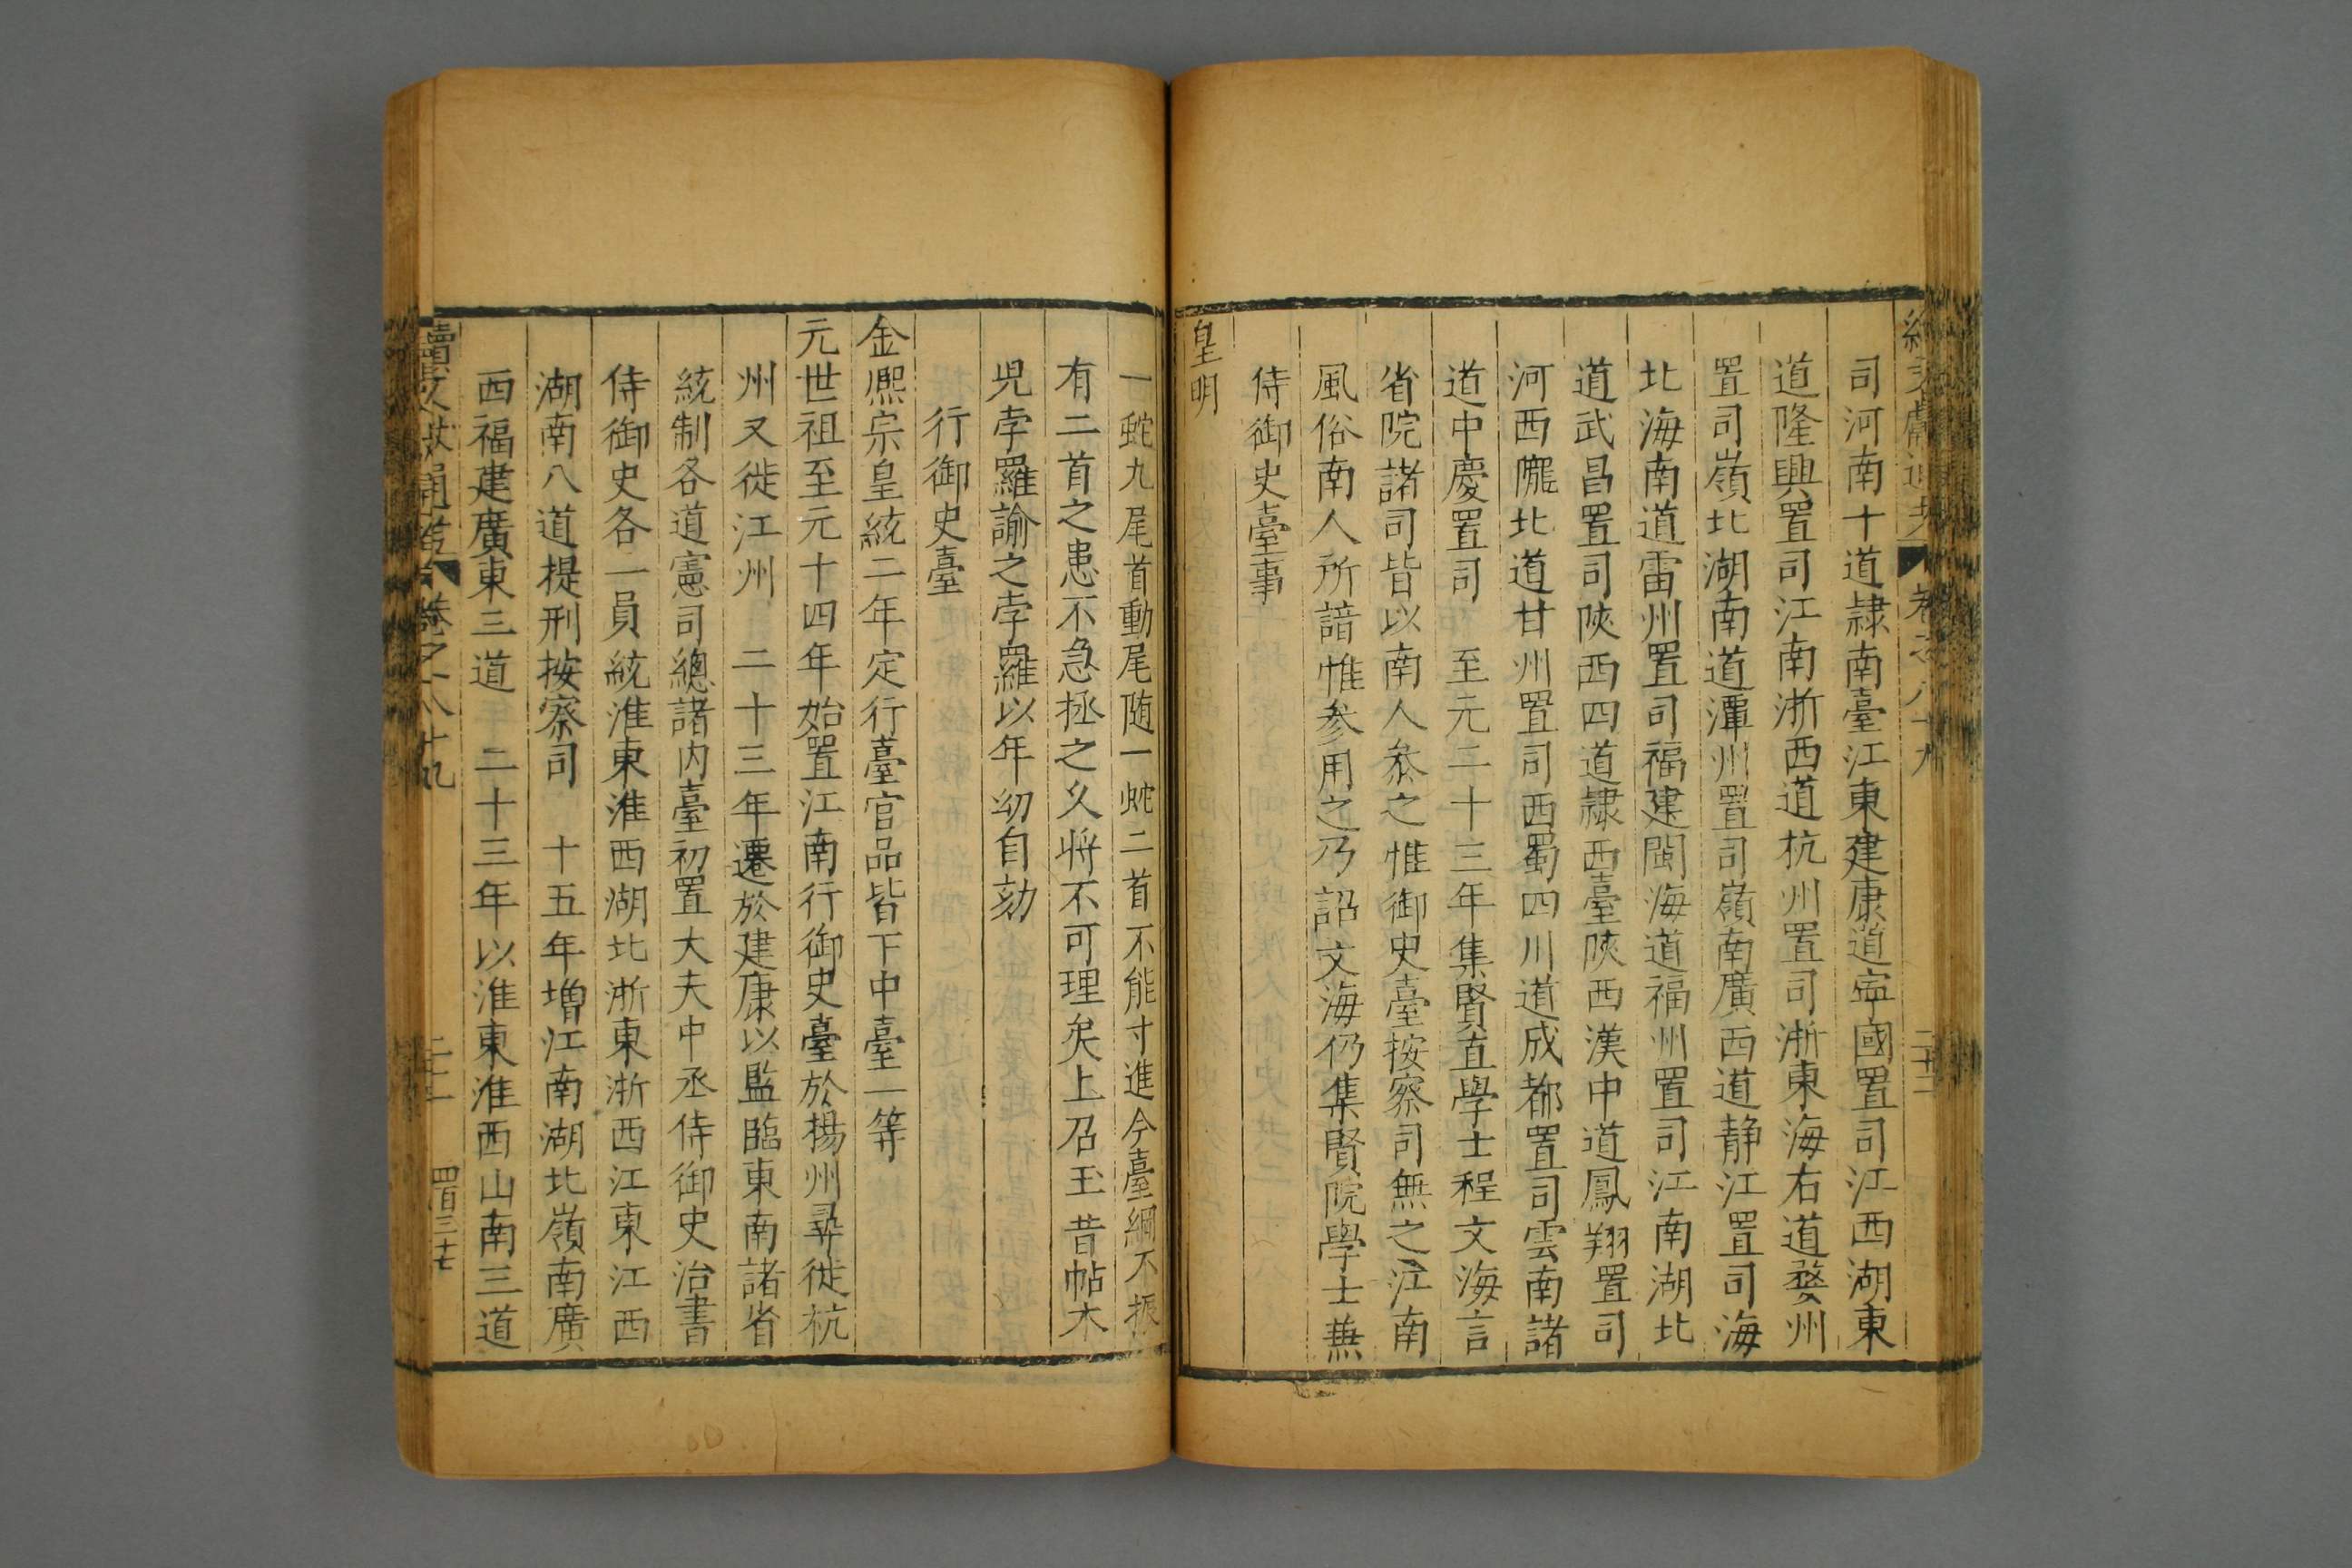 續文獻通考 卷之八十九 二十二
司河南十道隷南臺江東建康道寧國置司江西湖東
道隆興置司江南浙西道杭州置司浙東海右道婺州
置司嶺北湖南道潭州置司嶺南廣西道静江置司海
北海南道雷州置司福建閩海道福州置司江南湖北
道武昌置司陝西四道隷西臺陝西漢中道鳳翔置司
河西隴北道甘州置司西蜀四川道成都置司雲南諸
道中慶置司 至元二十三年集賢直學士程文海言
省院諸司皆以南人叅之惟御史臺按察司無之江南
風俗南人所諳惟参用之乃詔文海仍集賢院學士蕪
侍御史臺事
皇明
一蛇九尾首動尾随一蛇二首不能寸進今臺綱不振
有二首之患不急拯之久將不可理矣上召玉昔帖木
児孛羅諭之孛羅以年幼自劾
行御史臺
金熈宗皇統二年定行臺官品皆下中臺一等
元世祖至元十四年始置江南行御史臺於揚州尋徙杭
州又徙江州 二十三年遷於建康以監臨東南諸省
統制各道憲司總諸内臺初置大夫中丞侍御史治書
侍御史各一員統淮東淮西湖北浙東浙西江東江西
湖南八道提刑按察司 十五年增江南湖北嶺南廣
西福建廣東三道 二十三年以淮東淮西山南三道
續文獻通考 卷之八十九 二十一 四百三十七